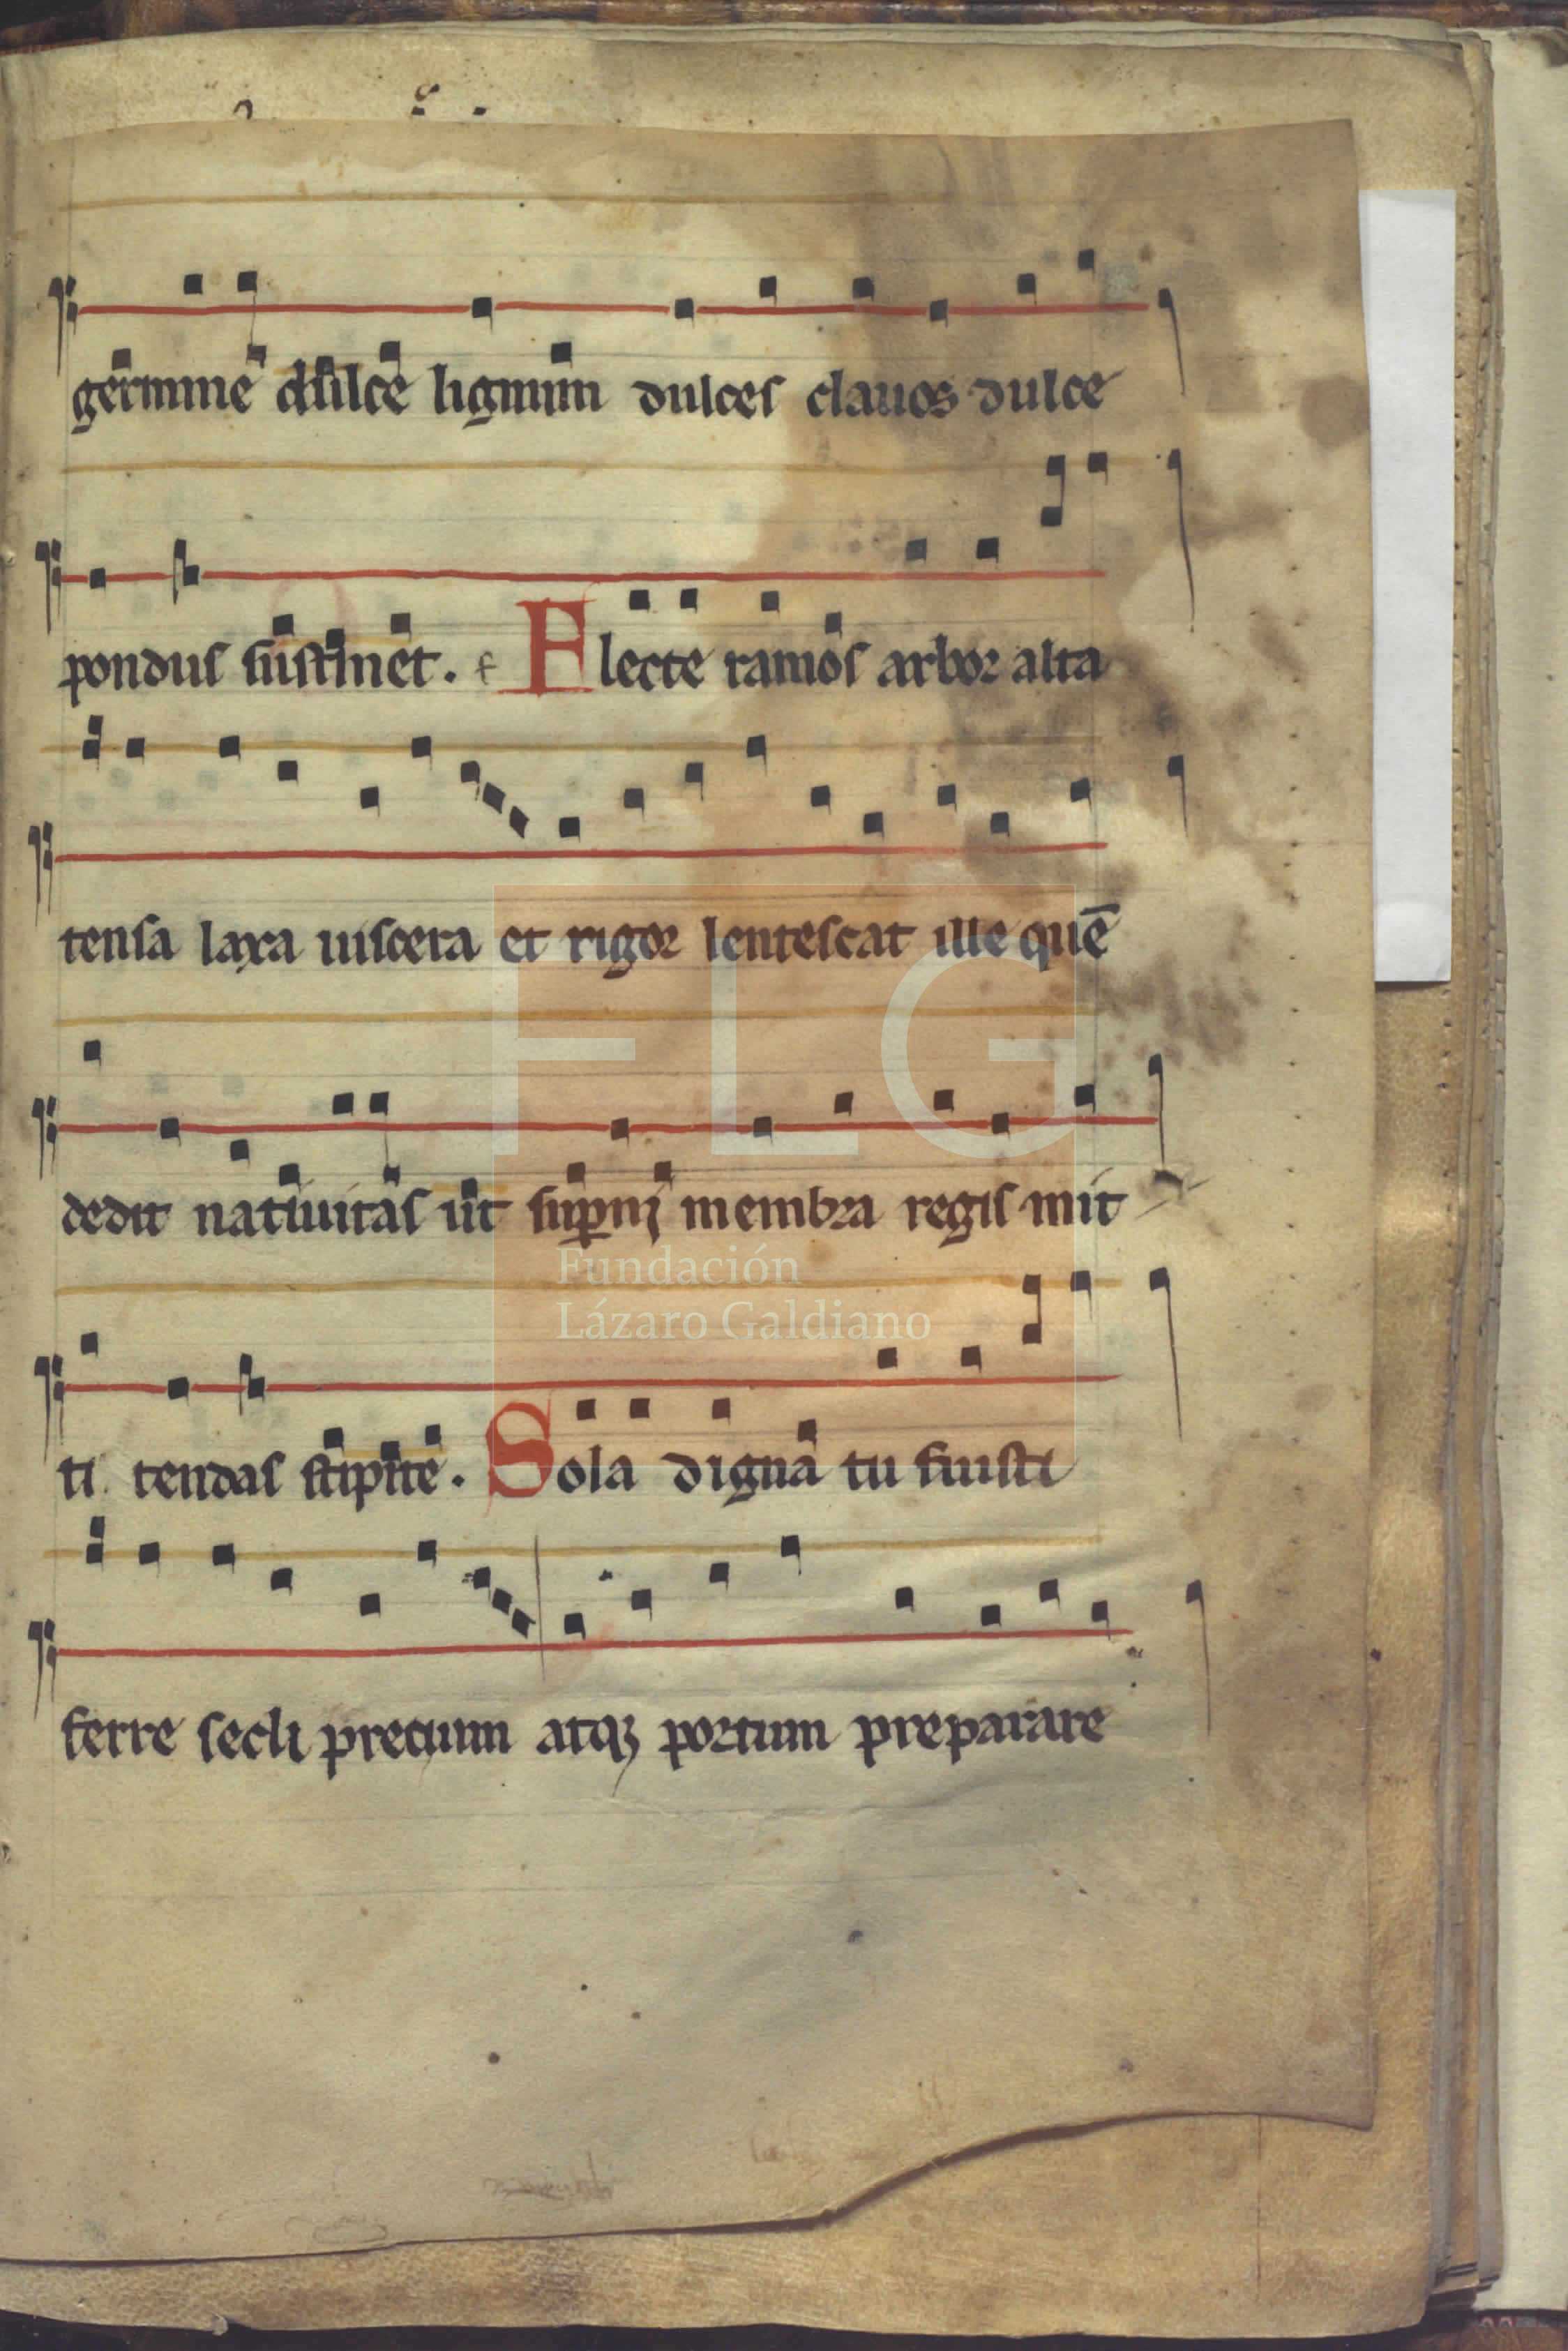 germine dulce lignum dulces clauos dulce
pondus sustinet. Flecte ramos arbor alta
tensa laxa uiscera et rigor lentescat ille quē
dedit natiuitas ut sup̱ni membra regis mit
ti tendas stipite. Sola digna tu fuisti
ferre secli precium atqꝫ portum preparare
FLG
Fundación
Lázaro Galdiano